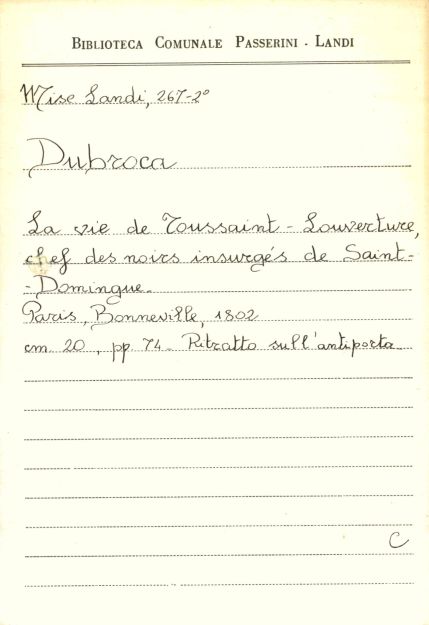 BIBLIOTECA COMUNALE PASSERINI - LANDI
Mise Landi, 267-2°
Dubroca
La vie de Toussaint - Louverture,
chef des noirs insurgés de Saint-
-Domingue.
Paris, Bonneville, 1802
cm 20, pp 74. Ritratto sull'antiporta.
C